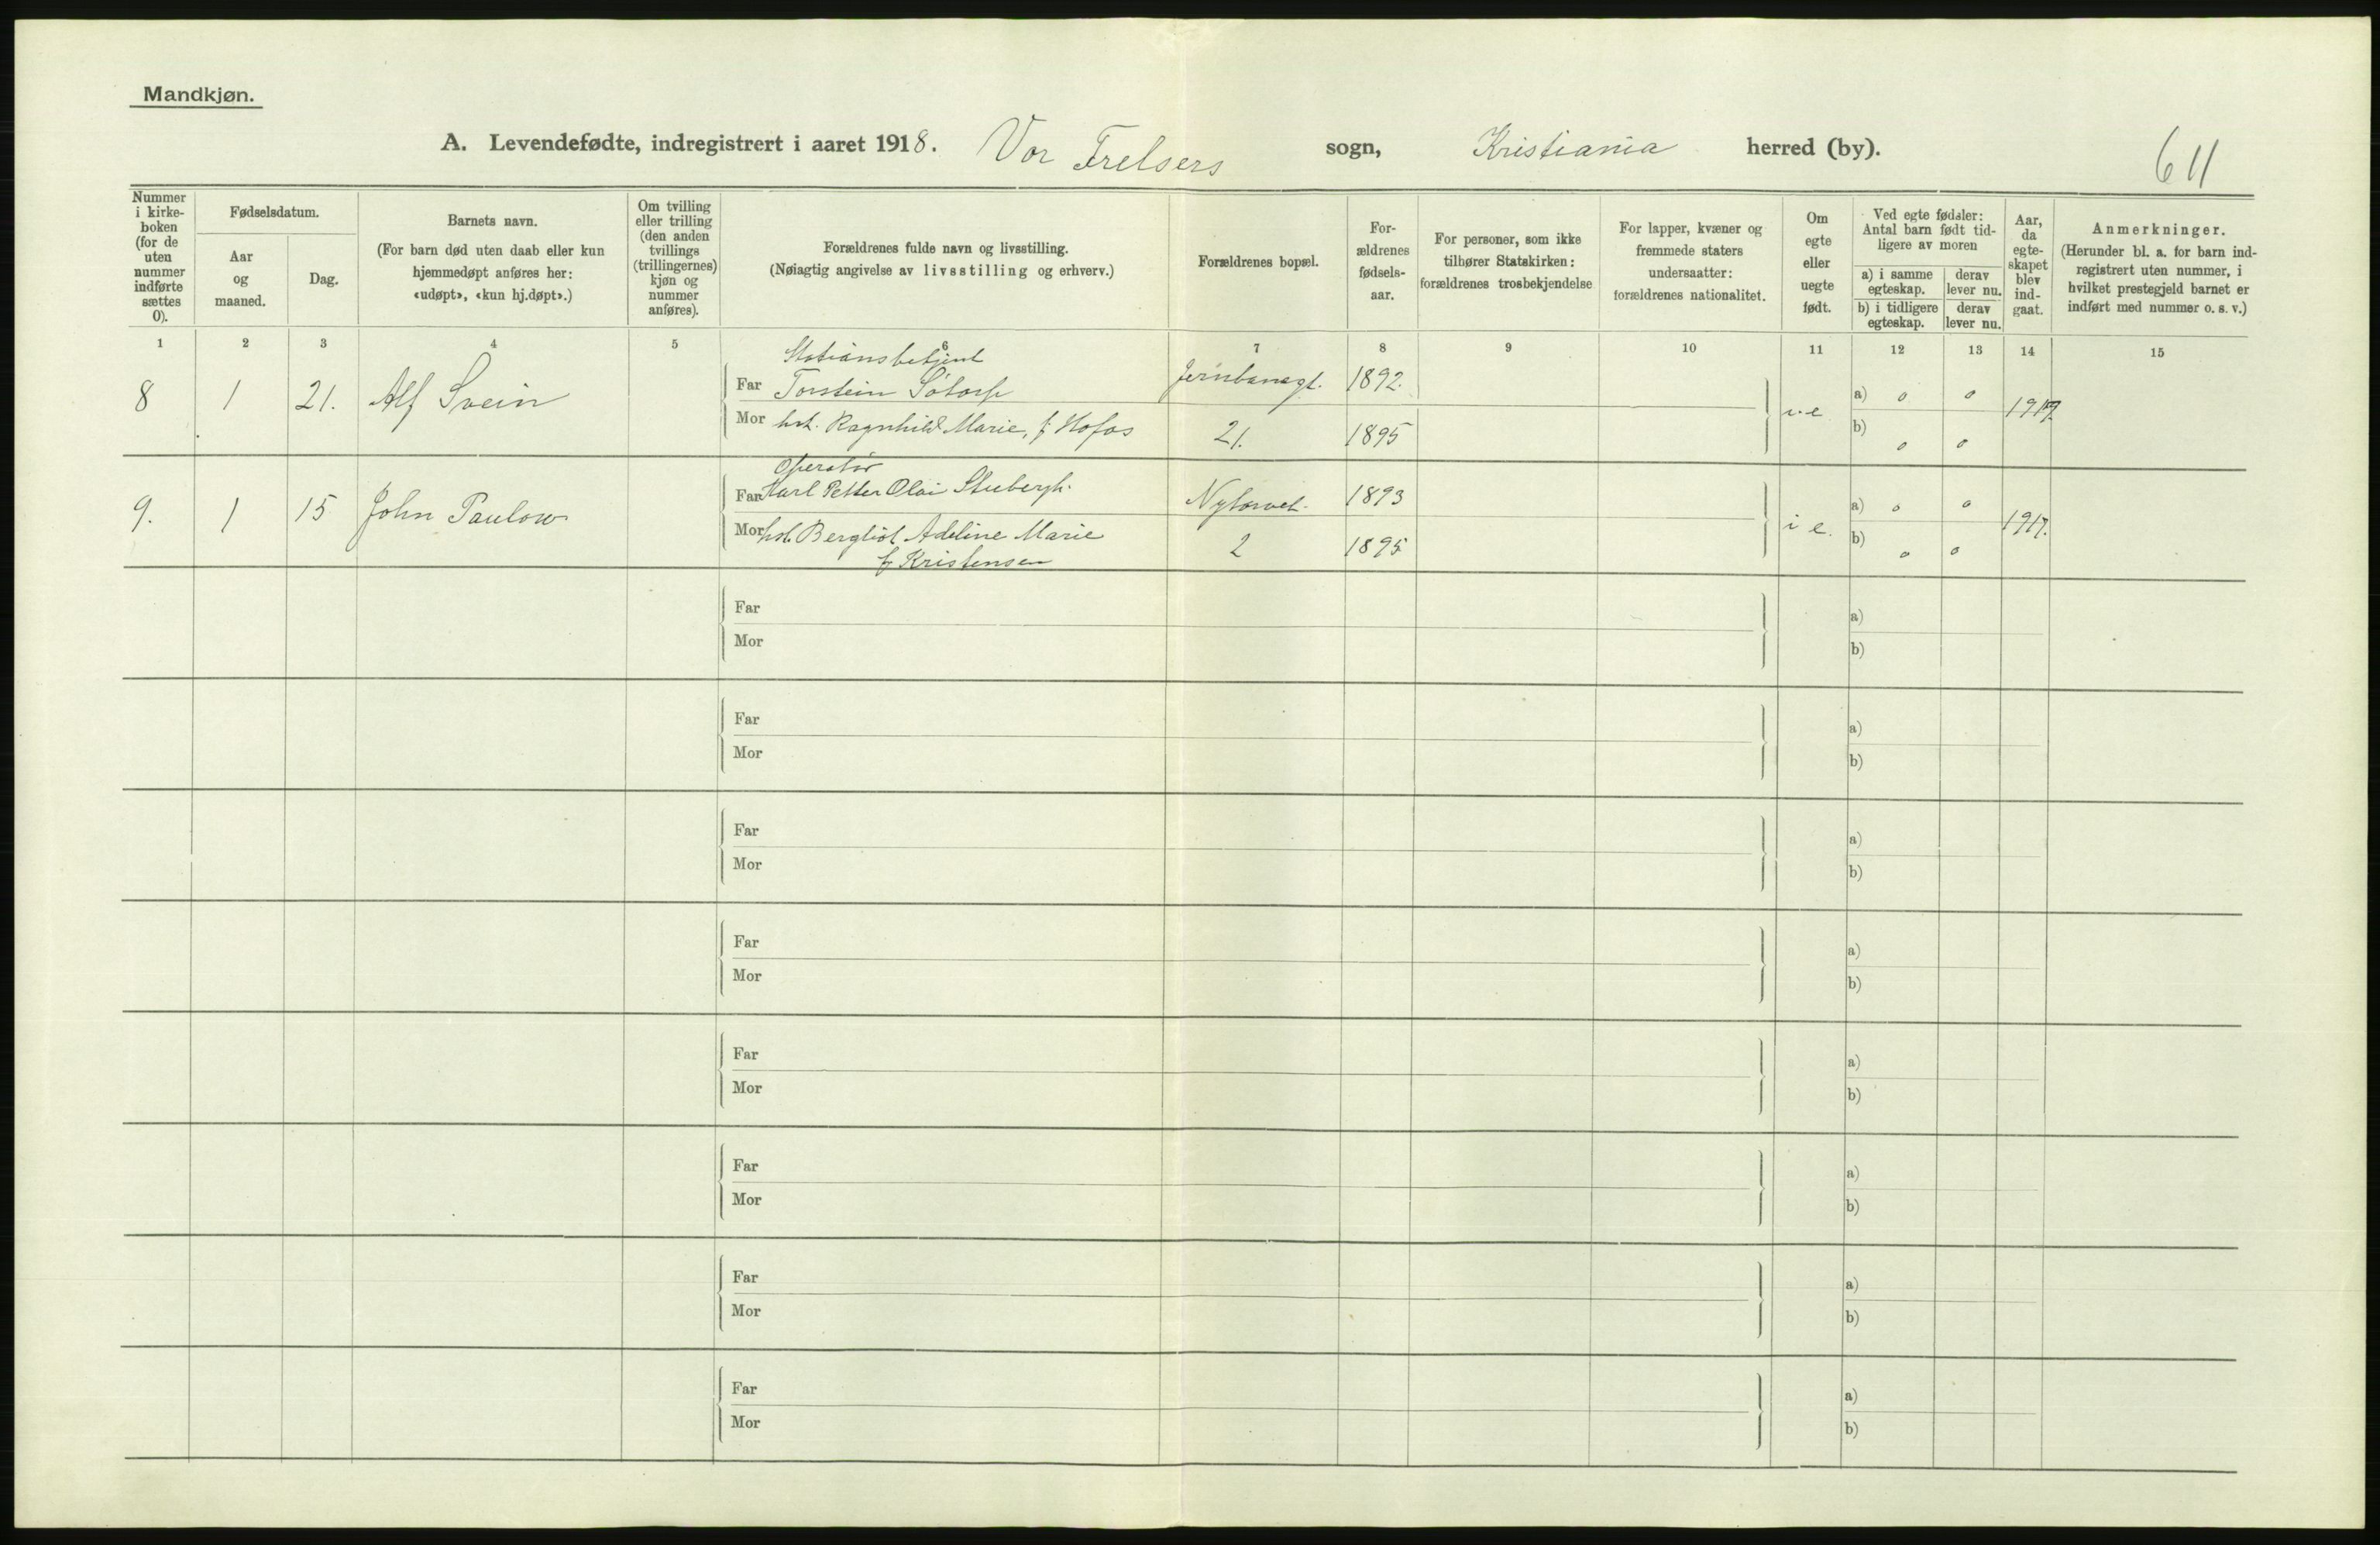 Mandkjøn.
A. Levendefødte, indregistrert i aaret 1918. Vor Frelsers sogn, Kristiania herred (by).
611
Nummer i kirke-boken (for de uten nummer indførte sættes 0).
Fødselsdatum.
Aar og maaned.
Dag.
Barnets navn.
(For barn død uten daab eller kun hjemmedøpt anføres her: «udøpt», «kun hj.døpt».)
Om tvilling eller trilling (den anden tvillings (trillingernes) kjøn og nummer anføres).
Forældrenes fulde navn og livsstilling.
(Nøiagtig angivelse av livsstilling og erhverv.)
Forældrenes bopæl.
For-ældrenes fødsels-aar.
For personer, som ikke tilhører Statskirken: forældrenes trosbekjendelse
For lapper, kvæner og fremmede staters undersaatter: forældrenes nationalitet.
Om egte eller uegte født.
Ved egte fødsler: Antal barn født tid-ligere av moren
a) i samme egteskap.
derav lever nu.
b) i tidligere egteskap.
derav lever nu.
Aar, da egte-skapet blev ind-gaat.
Anmerkninger.
(Herunder bl. a. for barn ind-registrert uten nummer, i hvilket prestegjeld barnet er indført med nummer o. s. v.)
1 2 3 4 5 6 7 8 9 10 11 12 13 14 15
Stationsbetjent
8 1 21. Alf Svein Far Torstein Jernbanegt. 1892. a) 0 0
Mor hst. Ragnhild Marie, f. Hofos 21. 1895 i.e. b) 0 0 1917.
Operatør
9. 1 15 John Paulow Far Karl Petter Olai Nytorvet. 1893 a) 0 0
Mor hst. Bergliot Adeline Marie 2 1895 i e. b) 0 0 1917.
f. Kristensen
Far a)
Mor b)
Far a)
Mor b)
Far a)
Mor b)
Far a)
Mor b)
Far a)
Mor b)
Far a)
Mor b)
Far a)
Mor b)
Far a)
Mor b)